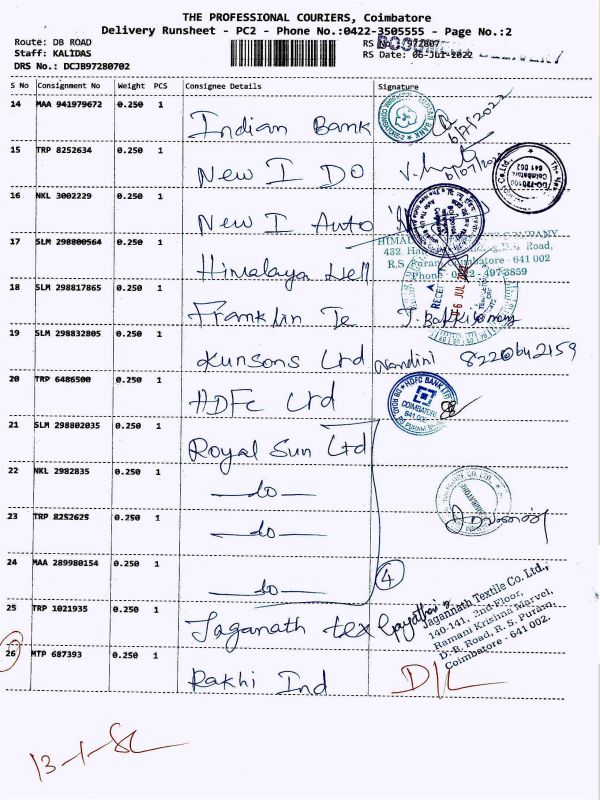 THE PROFESSIONAL COURIERS, Coimbatore
Delivery Runsheet - PC2 - Phone No.:0422-3505555 - Page No.:2
Route: DB ROAD
Staff: KALIDAS
DRS No.: DCJB97280702
RS Date: 06-Jul-2022
S No Consignment No Weight PCS Consignee Details Signature
14 MAA 941979672 0.250 1 Indian Bank 6/7/2022
15 TRP 8252634 0.250 1 New I DO
16 NKL 3002229 0.250 1 New I Auto
17 SLM 298800564 0.250 1 Himalaya Hell
R.S. Puram, Coimbatore - 641 002
18 SLM 298817865 0.250 1 Franklin Te
19 SLM 298832805 0.250 1 Kunsons Ltd Nandini 8220642159
20 TRP 6486500 0.250 1 HDFC Ltd
HDFC BANK LTD
COIMBATORE
21 SLM 298802035 0.250 1 Royal Sun Ltd
22 NKL 2982835 0.250 1 — do —
23 TRP 8252625 0.250 1 — do —
24 MAA 289980154 0.250 1 — do —
4
25 TRP 1021935 0.250 1 Jaganath tex
Jagannath Textile Co. Ltd.,
140-141, 2nd-Floor,
Ramani Krishna Marvel,
D.B. Road, R. S. Puram,
Coimbatore - 641 002.
26 MTP 687393 0.250 1 Rakhi Ind D/L